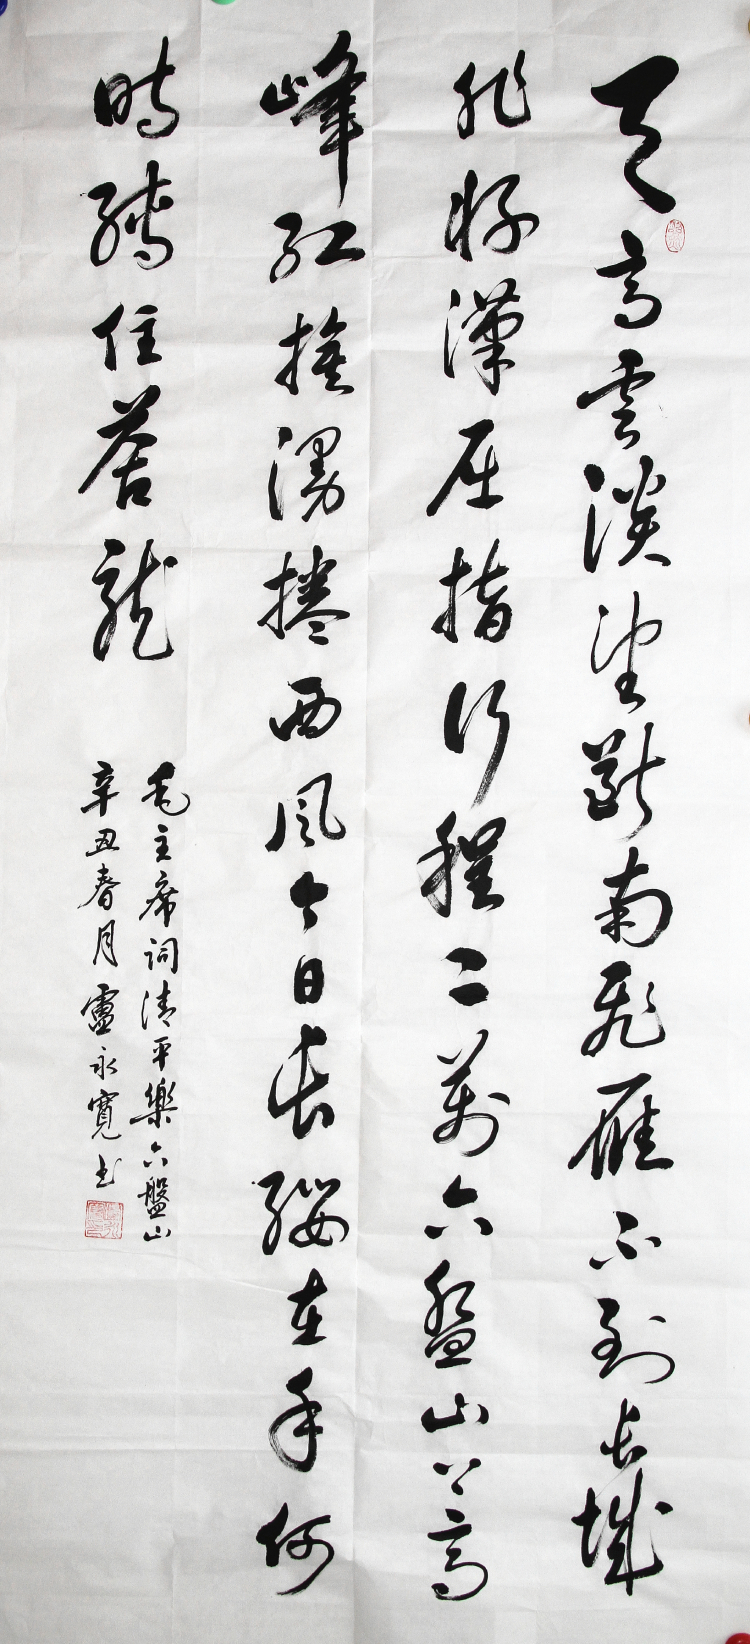 天高雲淡望斷南飛雁不到長城
非好漢屈指行程二萬六盤山上高
峰紅旗漫捲西風今日長纓在手何
時縛住蒼龍
毛主席詞清平樂六盤山
辛丑春月盧永寬书